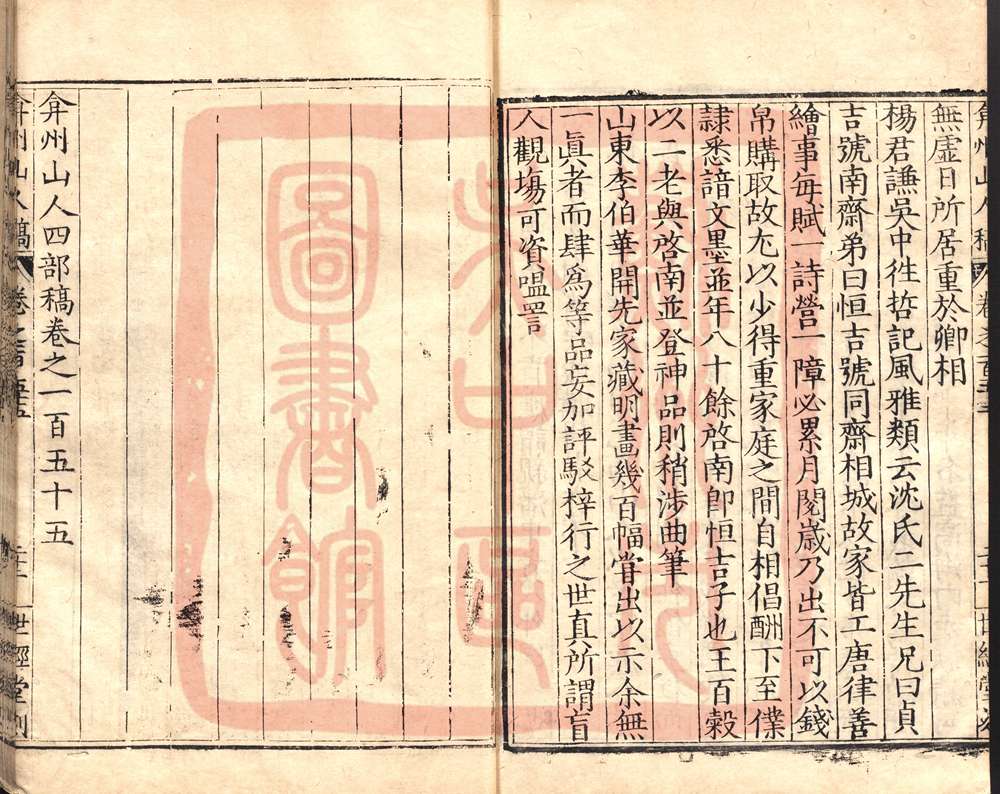 弇州山人稿 卷之百五十五 世經堂刻
無虚日所居重於卿相
楊君謙吳中徃哲記風雅類云沈氏二先生兄曰貞
吉號南齋弟曰恒吉號同齋相城故家皆工唐律善
繪事每賦一詩營一障必累月閱歲乃出不可以錢
帛購取故尤以少得重家庭之間自相倡酬下至僕
隷悉諳文墨並年八十餘啓南卽恒吉子也王百榖
以二老與啓南並登神品則稍涉曲筆
山東李伯華開先家藏明畫幾百幅甞出以示余無
一眞者而肆爲等品妄加評駁梓行之世真所謂盲
人觀塲可資嗢噱
弇州山人四部稿卷之一百五十五
弇州山人稿 卷之百五十五 世經堂刻
圖書館